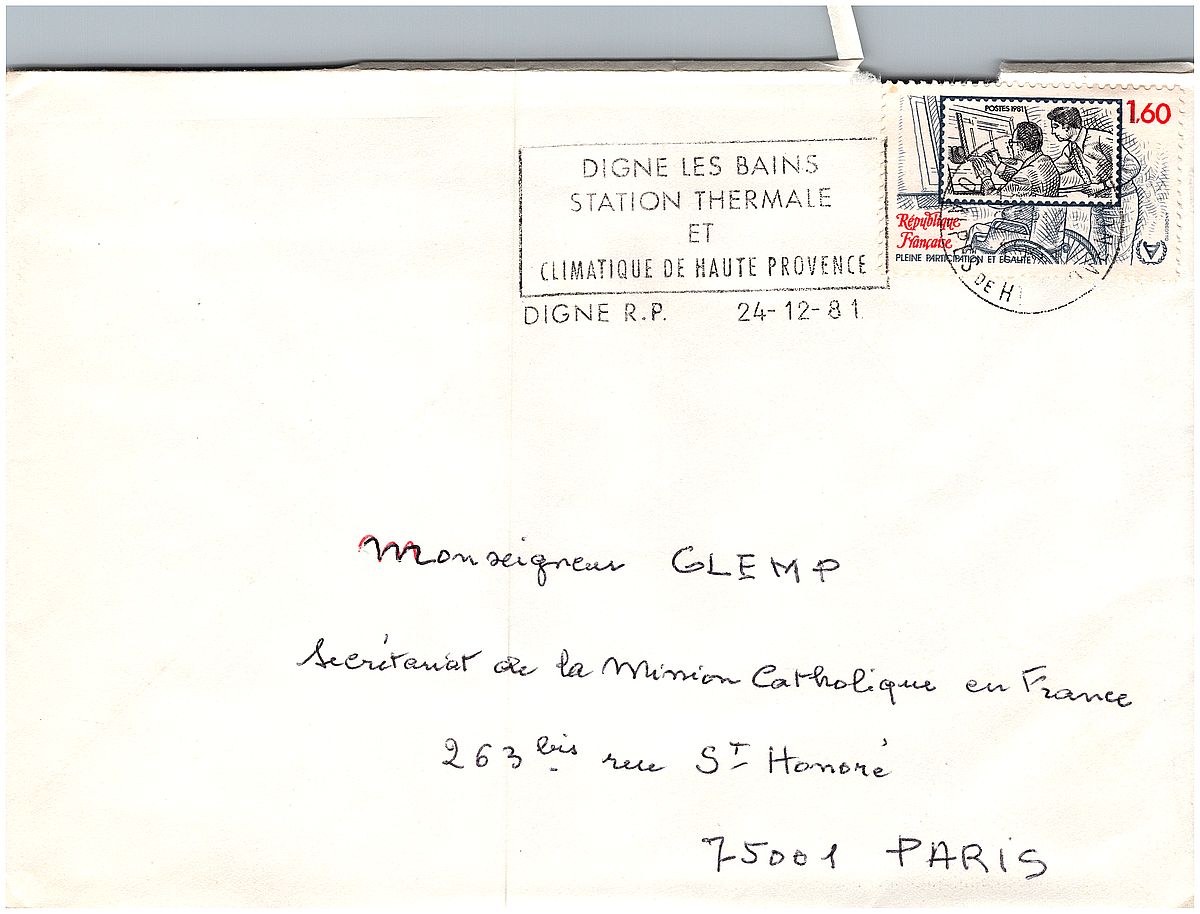 DIGNE LES BAINS
STATION THERMALE
ET
CLIMATIQUE DE HAUTE PROVENCE
DIGNE R.P. 24-12-81
POSTES 1981
1,60
République
Française
PLEINE PARTICIPATION ET EGALITE
ALPES DE H
Monseigneur GLEMP
Secrétariat de la Mission Catholique en France
263 bis rue St Honoré
75001 PARIS